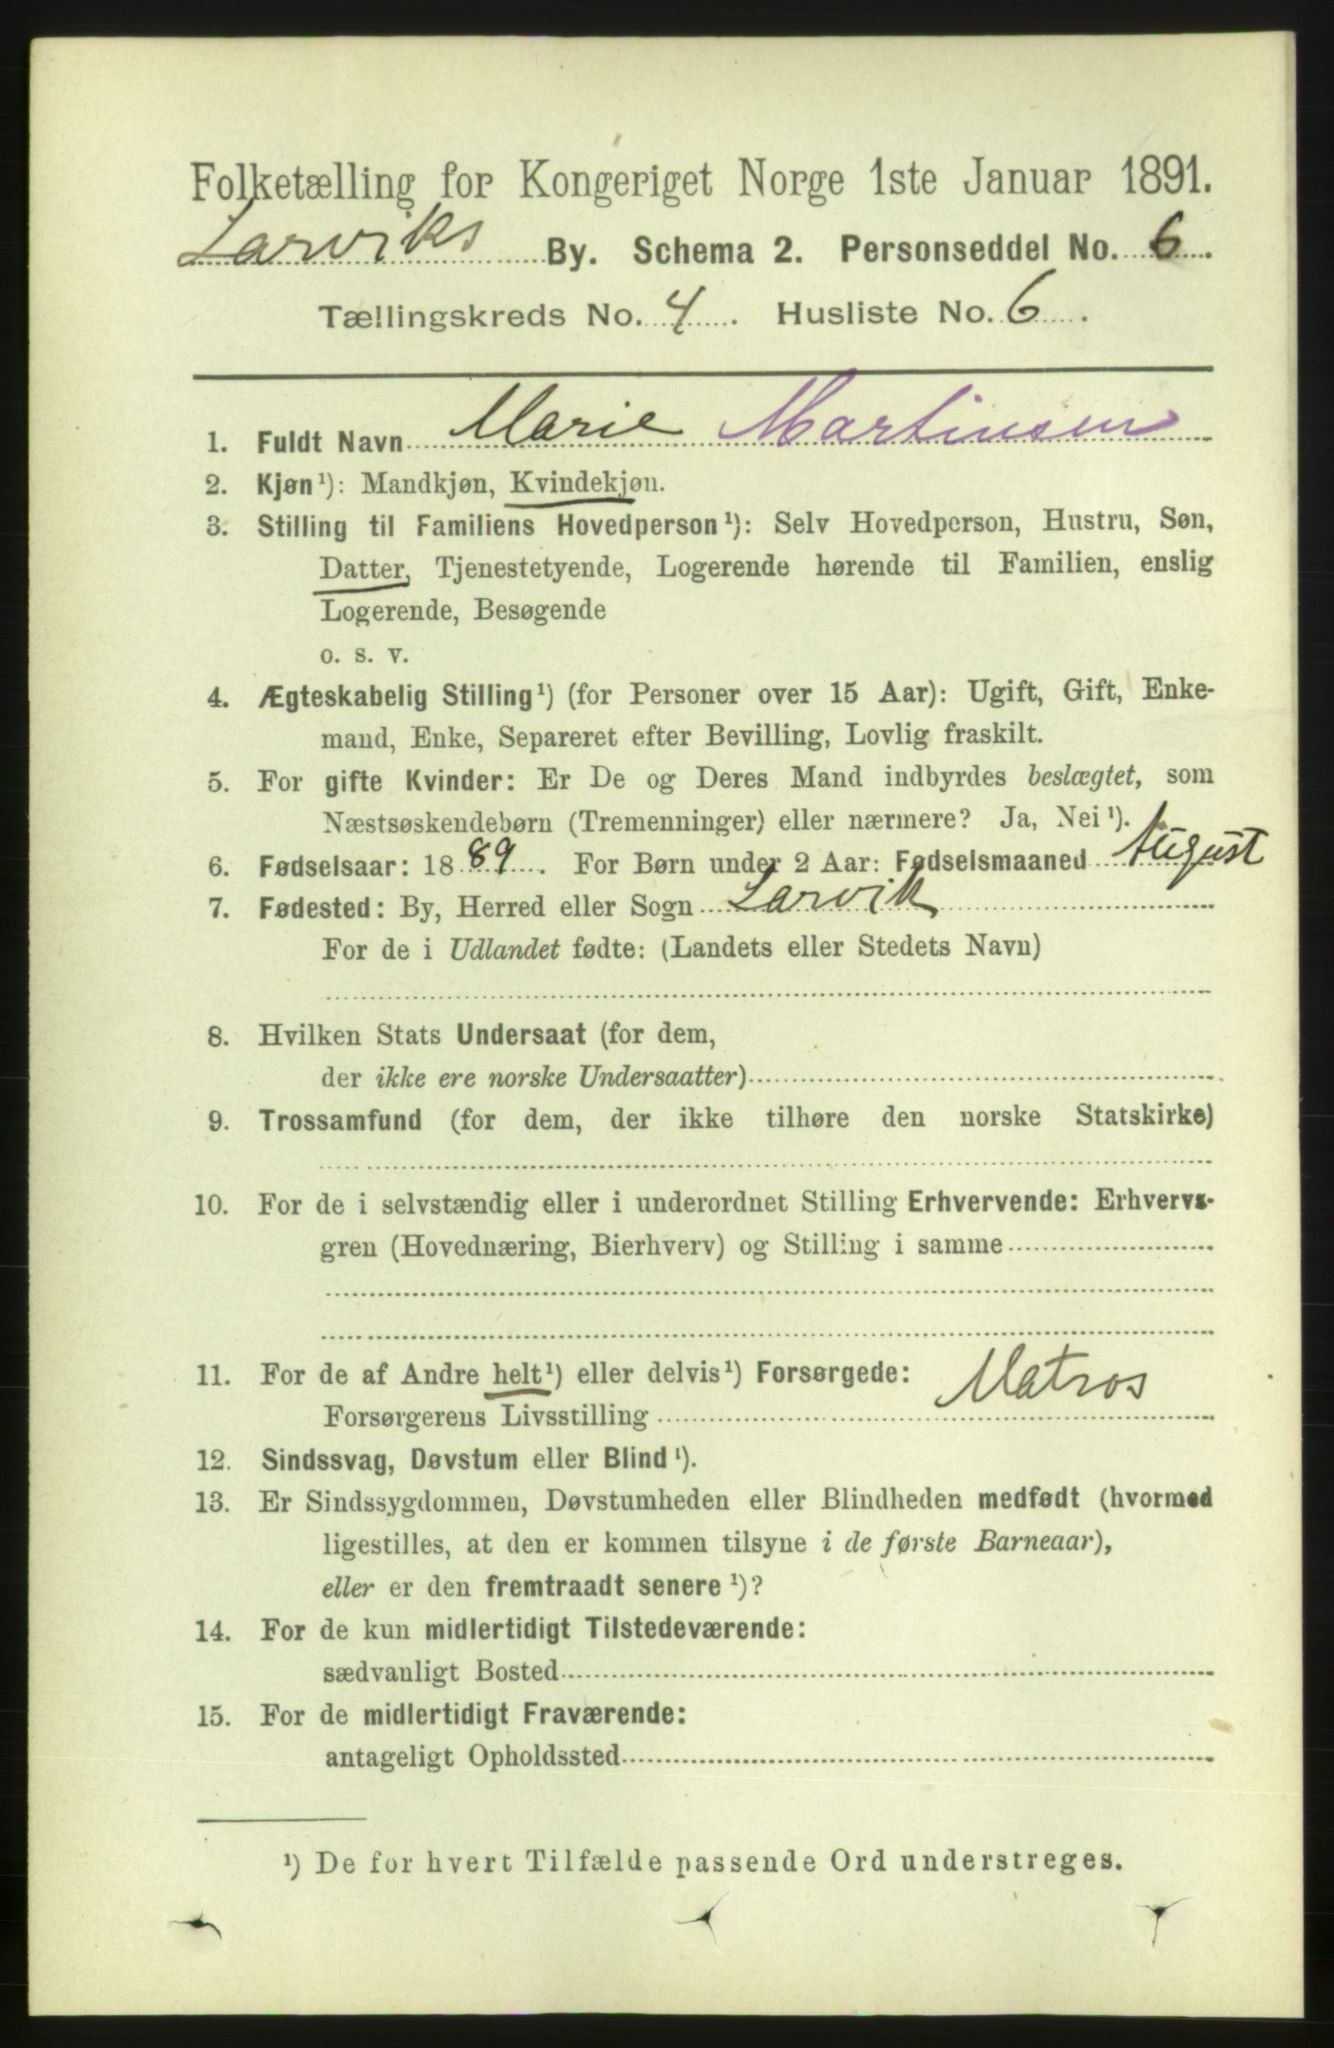 Folketælling for Kongeriget Norge 1ste Januar 1891.
Larviks By. Schema 2. Personseddel No. 6.
Tællingskreds No. 4. Husliste No. 6.
1. Fuldt Navn Marie Martinsen
2. Kjøn¹): Mandkjøn, Kvindekjøn.
3. Stilling til Familiens Hovedperson¹): Selv Hovedperson, Hustru, Søn,
Datter, Tjenestetyende, Logerende hørende til Familien, enslig
Logerende, Besøgende
o. s. v.
4. Ægteskabelig Stilling¹) (for Personer over 15 Aar): Ugift, Gift, Enke-
mand, Enke, Separeret efter Bevilling, Lovlig fraskilt.
5. For gifte Kvinder: Er De og Deres Mand indbyrdes beslægtet, som
Næstsøskendebørn (Tremenninger) eller nærmere? Ja, Nei¹).
6. Fødselsaar: 1889. For Børn under 2 Aar: Fødselsmaaned August
7. Fødested: By, Herred eller Sogn Larvik
For de i Udlandet fødte: (Landets eller Stedets Navn)
8. Hvilken Stats Undersaat (for dem,
der ikke ere norske Undersaatter)
9. Trossamfund (for dem, der ikke tilhøre den norske Statskirke)
10. For de i selvstændig eller i underordnet Stilling Erhvervende: Erhvervs-
gren (Hovednæring, Bierhverv) og Stilling i samme
11. For de af Andre helt¹) eller delvis¹) Forsørgede:
Forsørgerens Livsstilling Matros
12. Sindssvag, Døvstum eller Blind¹).
13. Er Sindssygdommen, Døvstumheden eller Blindheden medfødt (hvormed
ligestilles, at den er kommen tilsyne i de første Barneaar),
eller er den fremtraadt senere¹)?
14. For de kun midlertidigt Tilstedeværende:
sædvanligt Bosted
15. For de midlertidigt Fraværende:
antageligt Opholdssted
¹) De for hvert Tilfælde passende Ord understreges.